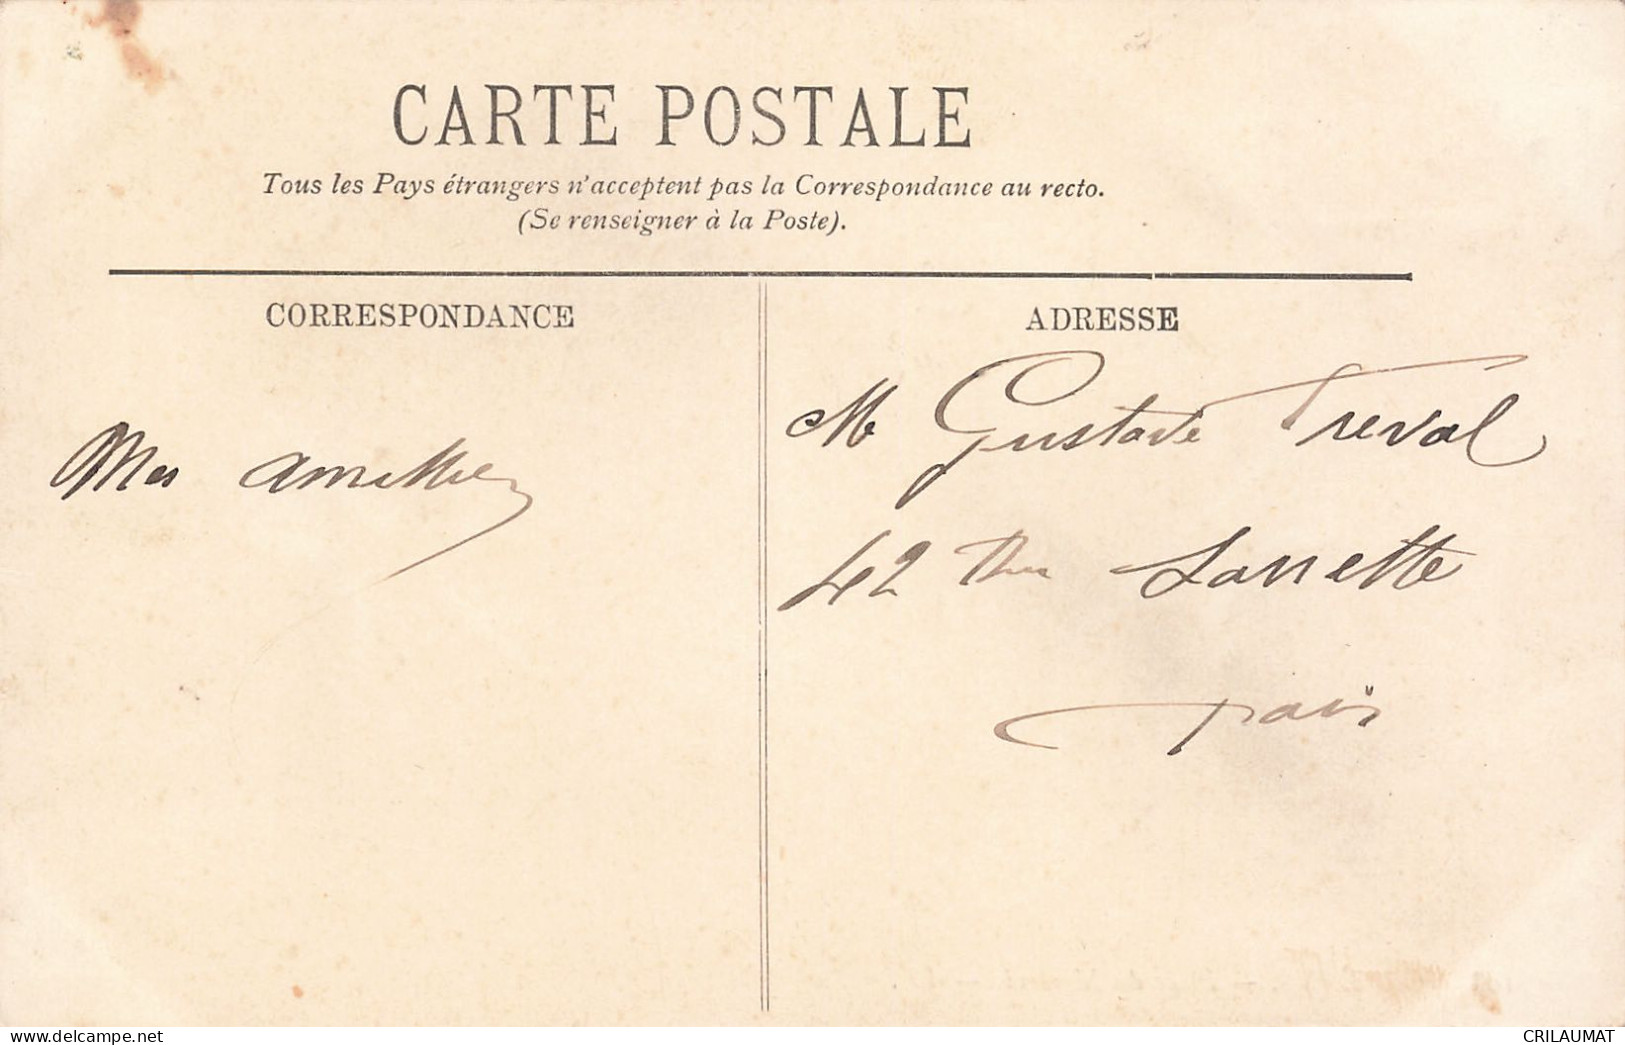 CARTE POSTALE
Tous les Pays étrangers n'acceptent pas la Correspondance au recto.
(Se renseigner à la Poste).
CORRESPONDANCE
ADRESSE
Mes amitiés
M Gustave Treval
42 Rue
Paris
CRILAUMAT